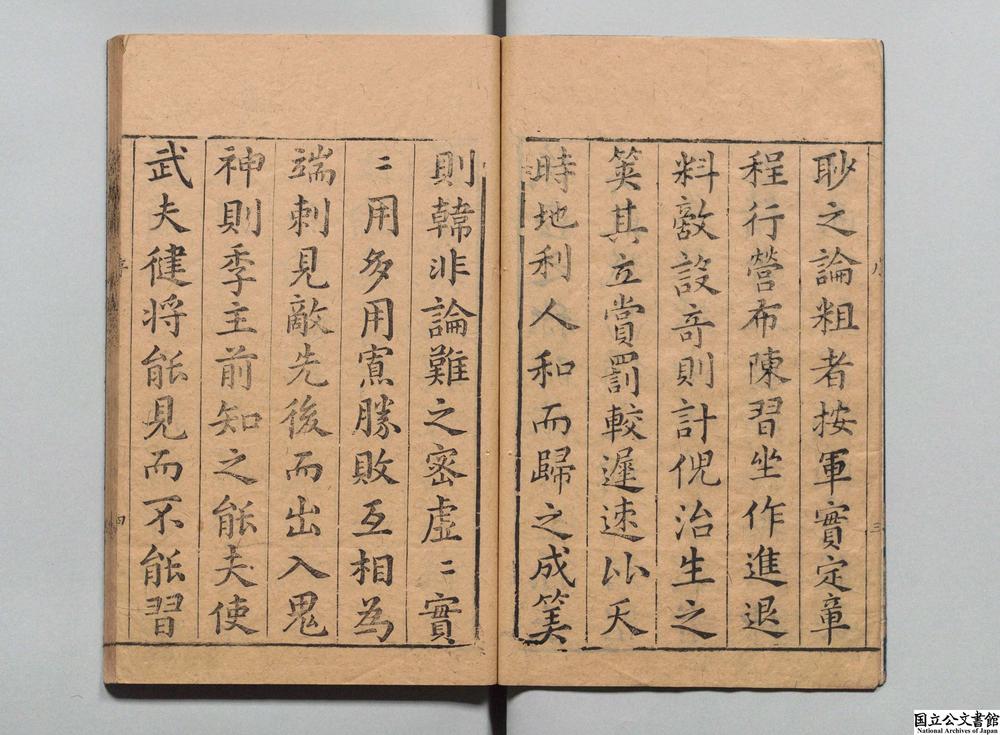 眇之論粗者按軍實定章
程行營布陳習坐作進退
料敵設竒則計倪治生之
筴其立賞罰較遲速以天
時地利人和而歸之成筭
則韓非論難之宻虛〻實
〻用多用寡勝敗互相為
端刺見敵先後而出入鬼
神則季主前知之能夫使
武夫健将能見而不能習
三
序
四
国立公文書館
National Archives of Japan